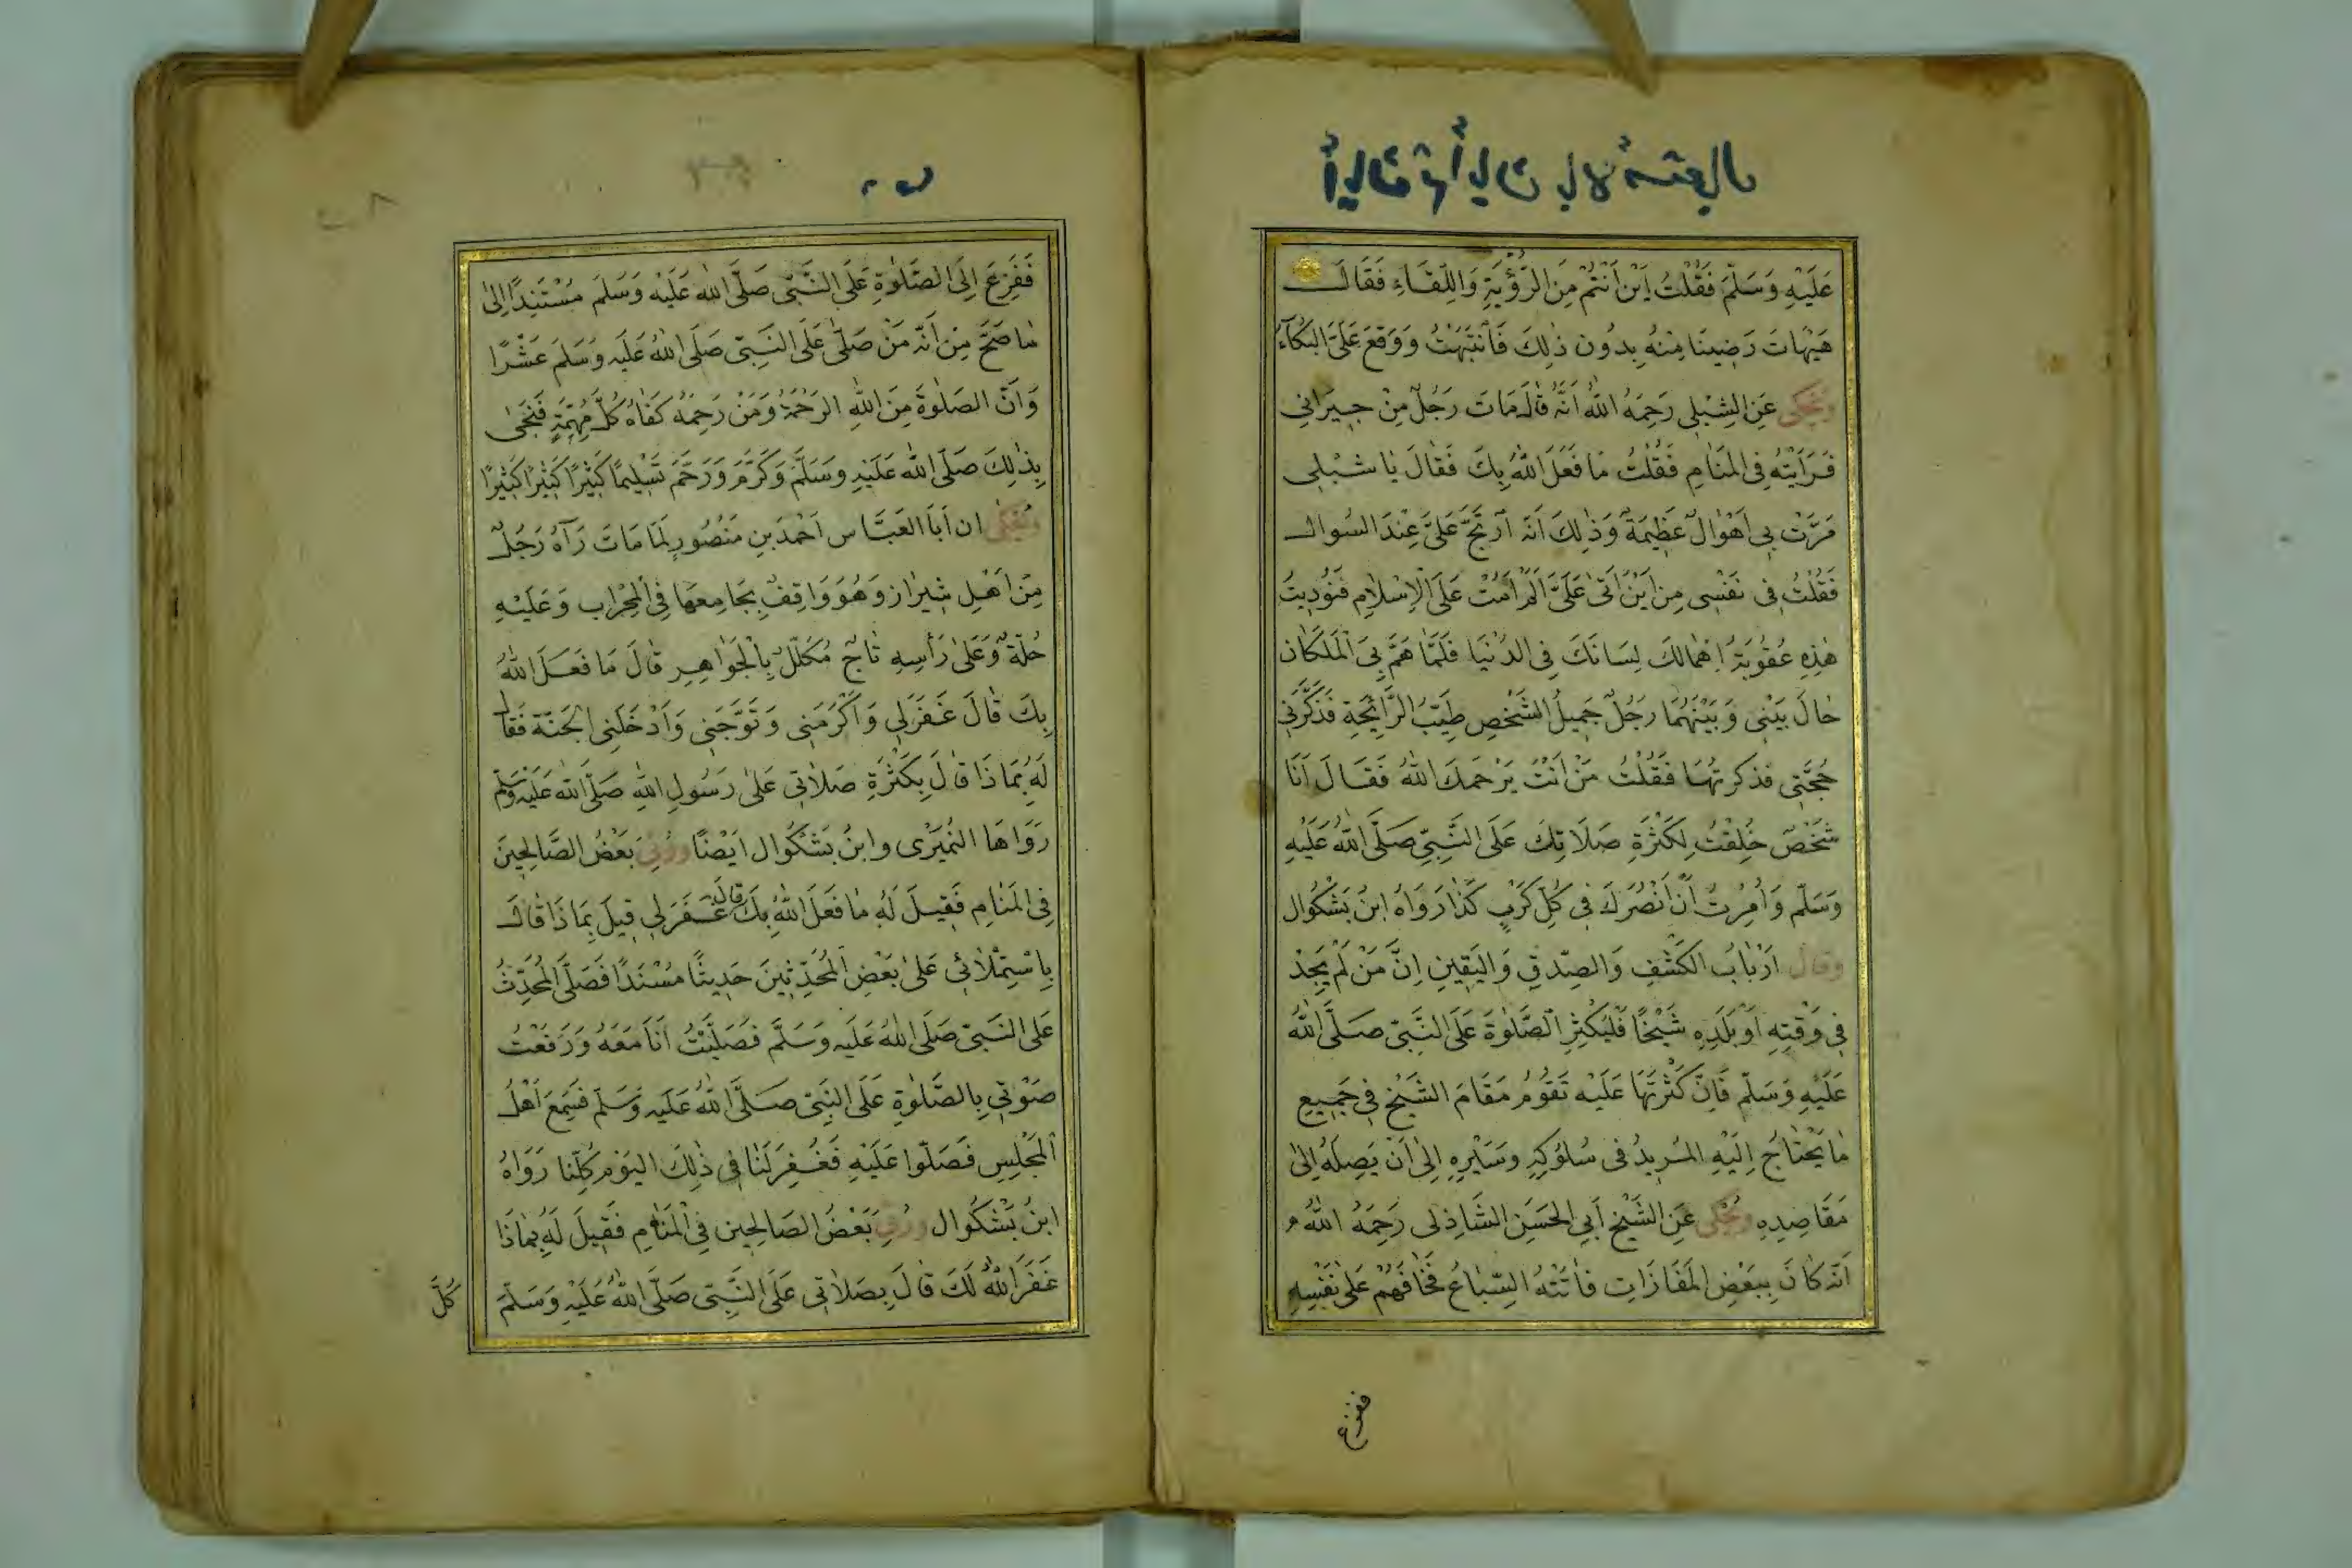 عَلَيْهِ وَسَلَّمَ فَقُلْتُ اَيْنَ اَنْتُمْ مِنَ الرُّؤْيَةِ وَاللِّقَاءِ فَقَالَ
هَيْهَاتَ رَضِينَا مِنْهُ بِدُونِ ذٰلِكَ فَانْتَبَهْتُ وَوَقَعَ عَلَىَّ البُكَآءُ
وَيُحْكٰى عَنِ الشِّبْلِى رَحِمَهُ اللّٰهُ اَنَّهُ قَالَ مَاتَ رَجُلٌ مِنْ جِيرَانِى
فَرَاَيْتُهُ فِى المَنَامِ فَقُلْتُ مَا فَعَلَ اللّٰهُ بِكَ فَقَالَ يَا شِبْلِى
مَرَّتْ بِى اَهْوَالٌ عَظِيمَةٌ وَذٰلِكَ اَنَّهُ اُرْتُجَّ عَلَىَّ عِنْدَ السُوال
فَقُلْتُ فِى نَفْسِى مِنْ اَيْنَ اُتِىَ عَلَىَّ اَلَمْ اَمُتْ عَلَى الْاِسْلَامِ فَنُودِيتُ
هٰذِهِ عُقُوبَةُ اِهْمَالِكَ لِسَانَكَ فِى الدُنْيَا فَلَمَّا هَمَّ بِىَ الْمَلَكَانِ
حَالَ بَيْنِى وَبَيْنَهُمَا رَجُلٌ جَمِيلُ الشَّخْصِ طَيِّبُ الرَّايِحَةِ فَذَكَّرَنِى
حُجَّتِى فذكرتُهَا فَقُلْتُ مَنْ اَنْتَ يَرْحَمُكَ اللّٰهُ فَقَالَ اَنَا
شَخْصٌ خُلِقْتُ لِكَثْرَةِ صَلَاتِكَ عَلَى النَّبِىِّ صَلَّى اللّٰهُ عَلَيْهِ
وَسَلَّم وَاُمِرْتُ اَنْ اَنْصُرَكَ فِى كُلِّ كَرْبٍ كَذَا رَوَاهُ ابنُ بَشْكُوال
وقال اَرْبَابُ الكَشْفِ وَالصِّدقِ وَاليَقِينِ اِنَّ مَنْ لَمْ يَجِدْ
فِى وَقْتِهِ اَوْ بَلَدِهِ شَيْخًا فَلْيُكْثِرِ الصَّلٰوةَ عَلَى النَّبِىّ صَلَّى اللّٰهُ
عَلَيْهِ وَسَلَّم فَاِنَّ كَثْرَتَهَا عَلَيْه تَقُومُ مَقَامَ الشَّيْخِ فِى جَمِيعِ
مَا يَحْتَاجُ اِلَيْهِ المُرِيدُ فى سُلُوكِهِ وَسَيْرِهِ اِلٰى اَنْ يَصِلَهُ اِلٰى
مَقَاصِدِهِ وَيُحْكٰى عَنِ الشَّيْخِ اَبِى الحَسَنِ الشَّاذِلى رَحِمَهُ اللّٰهُ
اَنَّه كَانَ بِبَعْضِ المَفَازَاتِ فَاَتَتْهُ السِّبَاعُ فَخَافَهُمْ عَلٰى نَفْسِهِ
ففزع
فَفَزِعَ اِلَى الصَّلٰوةِ عَلَى النَّبِّى صَلَّى اللّٰه عَلَيْه وَسَلَّم مُسْتَنِدًا اِلٰى
مٰا صَحَّ مِنْ اَنَّهُ مَنْ صَلّٰى عَلَى النَّبِىّ صَلَّى اللّٰهُ عَلَيه وَسَلَّمَ عَشْرًا
وَاَنَّ الصَلٰوةَ مِنَ اللّٰهِ الرَحْمَةُ وَمَنْ رَحِمَهُ كَفَاهُ كُلَّ مُهِمَّةٍ فَنَجٰى
بِذٰلِكَ صَلَّى اللّٰه عَلَيْهِ وَسَلَّمَ وَكَرَّمَ وَرَحَّمَ تَسْلِيمًا كَثِيْرًا كَثِيْرًا كَثِيْرًا
وَيُحْكٰى ان اَبَا العَبَّاس اَحْمَدَ بنِ مَنْصُورٍ لَمَا مَاتَ رَآهُ رَجُلٌ
مِنْ اَهْلِ شِيْرَاز وَهُوَ وَاقِفٌ بِجَامِعِهَا فِى المِحْرَاب وَعَلَيْهِ
حُلَّةٌ وَعَلٰى رَأْسِهِ تَاجٌ مُكَلَّلٌ بِالْجَوَاهِرِ قَالَ مَا فَعَلَ اللّٰهُ
بِكَ قَالَ غَفَرَلِى وَاَكْرَمَنِى وَتَوَّجَنِى وَاَدْخَلَنِى الجَنَّة فَقَال
لَهُ بِمَاذَا قَالَ بِكَثْرَةِ صَلَاتِى عَلٰى رَسُولِ اللّٰهِ صَلَّى اللّٰه عَلَيْه وَسَلَّم
رَوَاهَا النُمَيْرِى وابنُ بَشْكُوال اَيْضًا ورُئِىَ بَعْضُ الصَّالِحِينَ
فِى المَنَامِ فَقِيلَ لَهُ مَا فَعَلَ اللّٰهُ بِكَ قالَ غَفَرَلِى قِيلَ بِمَاذَا قَالَ
بِاسْتِمْلَائِى عَلٰى بَعْضِ المُحَدِّثِينَ حَدِيثًا مُسْنَدًا فَصَلَّى المُحَدِّثُ
عَلَى النَبِىّ صَلَّى اللّٰهُ عَلَيه وَسَلَّم فَصَلَّيْتُ اَنَا مَعَهُ وَرَفَعْتُ
صَوْتِى بِالصَّلٰوةِ عَلَى النَّبِىّ صَلَّى اللّٰهُ عَلَيه وَسَلَّم فَسَمِعَ اَهْلُ
المَجْلِسِ فَصَلّوا عَلَيْهِ فَغُفِرَ لَنَا فِى ذٰلِكَ اليَوْمِ كُلِّنا رَوَاهُ
ابنُ بَشْكُوال ورُئِىَ بَعْضُ الصَالِحِين فِى الْمَنَامِ فَقِيلَ لَهُ بِمَاذَا
غَفَرَ اللّٰهُ لَكَ قَالَ بِصَلَاتِى عَلَى النَّبِىّ صَلَّى اللّٰهُ عَلَيْهِ وَسَلَّمَ
كُلَّ